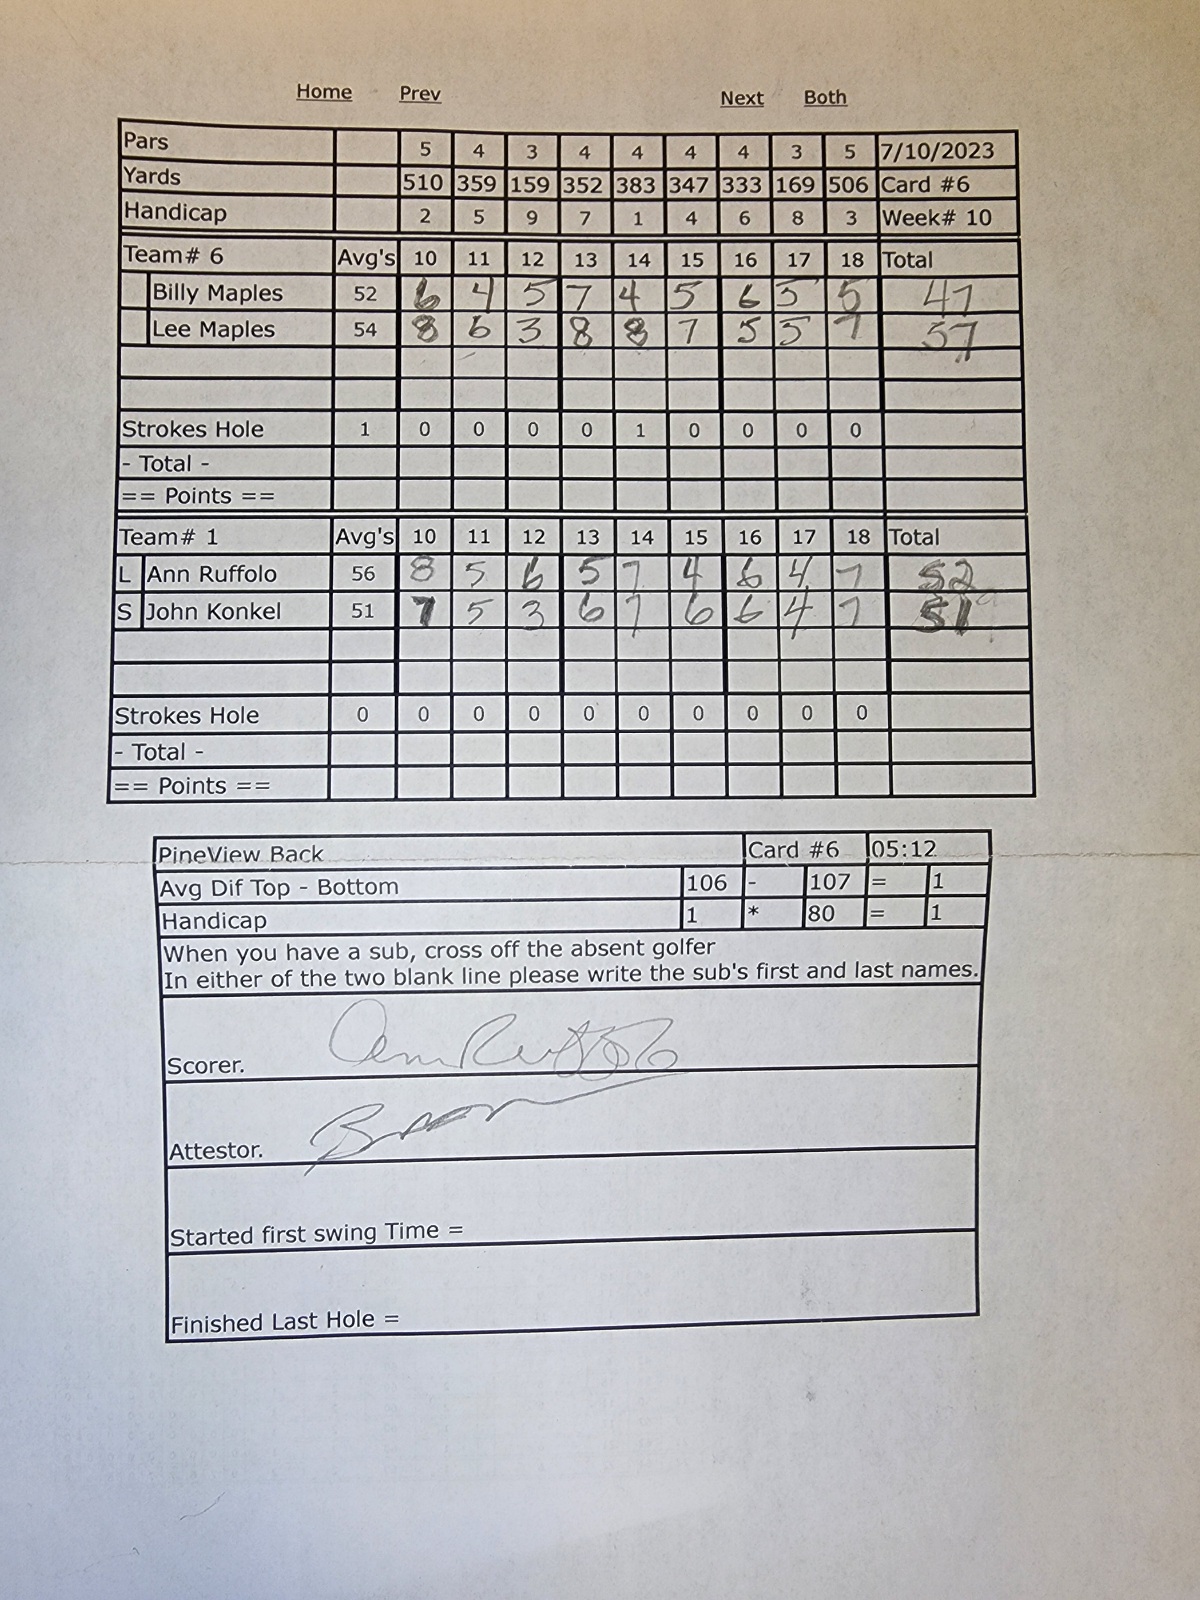 Home Prev Next Both
Pars 5 4 3 4 4 4 4 3 5 7/10/2023
Yards 510 359 159 352 383 347 333 169 506 Card #6
Handicap 2 5 9 7 1 4 6 8 3 Week# 10
Team# 6 Avg's 10 11 12 13 14 15 16 17 18 Total
Billy Maples 52 6 4 5 7 4 5 6 5 5 47
Lee Maples 54 8 6 3 8 8 7 5 5 7 57
Strokes Hole 1 0 0 0 0 1 0 0 0 0
- Total -
== Points ==
Team# 1 Avg's 10 11 12 13 14 15 16 17 18 Total
L Ann Ruffolo 56 8 5 6 5 7 4 6 4 7 52
S John Konkel 51 7 5 3 6 7 6 6 4 7 51
Strokes Hole 0 0 0 0 0 0 0 0 0 0
- Total -
== Points ==
PineView Back Card #6 05:12
Avg Dif Top - Bottom 106 - 107 = 1
Handicap 1 * 80 = 1
When you have a sub, cross off the absent golfer
In either of the two blank line please write the sub's first and last names.
Scorer. Ann Ruffolo
Attestor.
Started first swing Time =
Finished Last Hole =